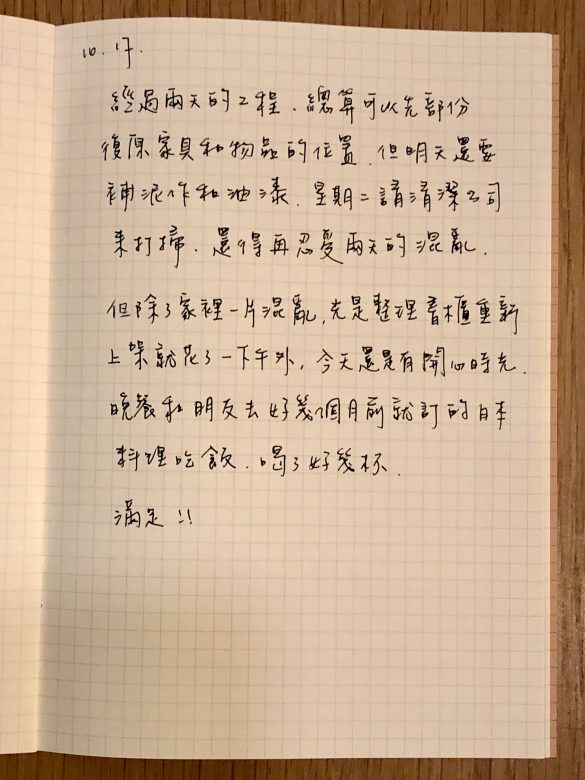 10.17.
經過兩天的工程、總算可以先部份
復原家具和物品的位置、但明天還要
補泥作和油漆、星期二請清潔公司
來打掃、還得再忍受兩天的混亂、
但除了家裡一片混亂,光是整理書櫃重新
上架就花了一下午外,今天還是有開心時光、
晚餐和朋友去好幾個月前就訂的日本
料理吃飯、喝了好幾杯、
滿足!!